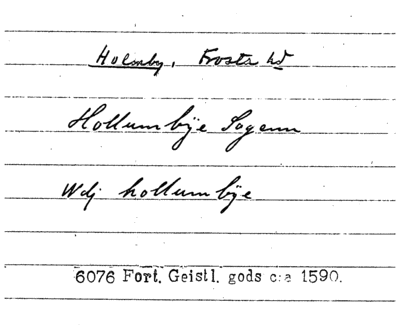 Holmby, Frosta hd
Hollumbÿe Sogenn
Wdj hollumbÿe
6076 Fort. Geistl. gods c:a 1590.